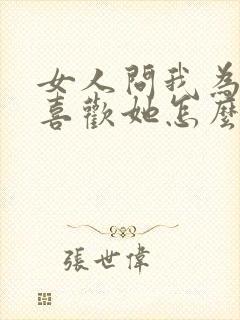 女人問我為
喜歡她怎麼
張世偉